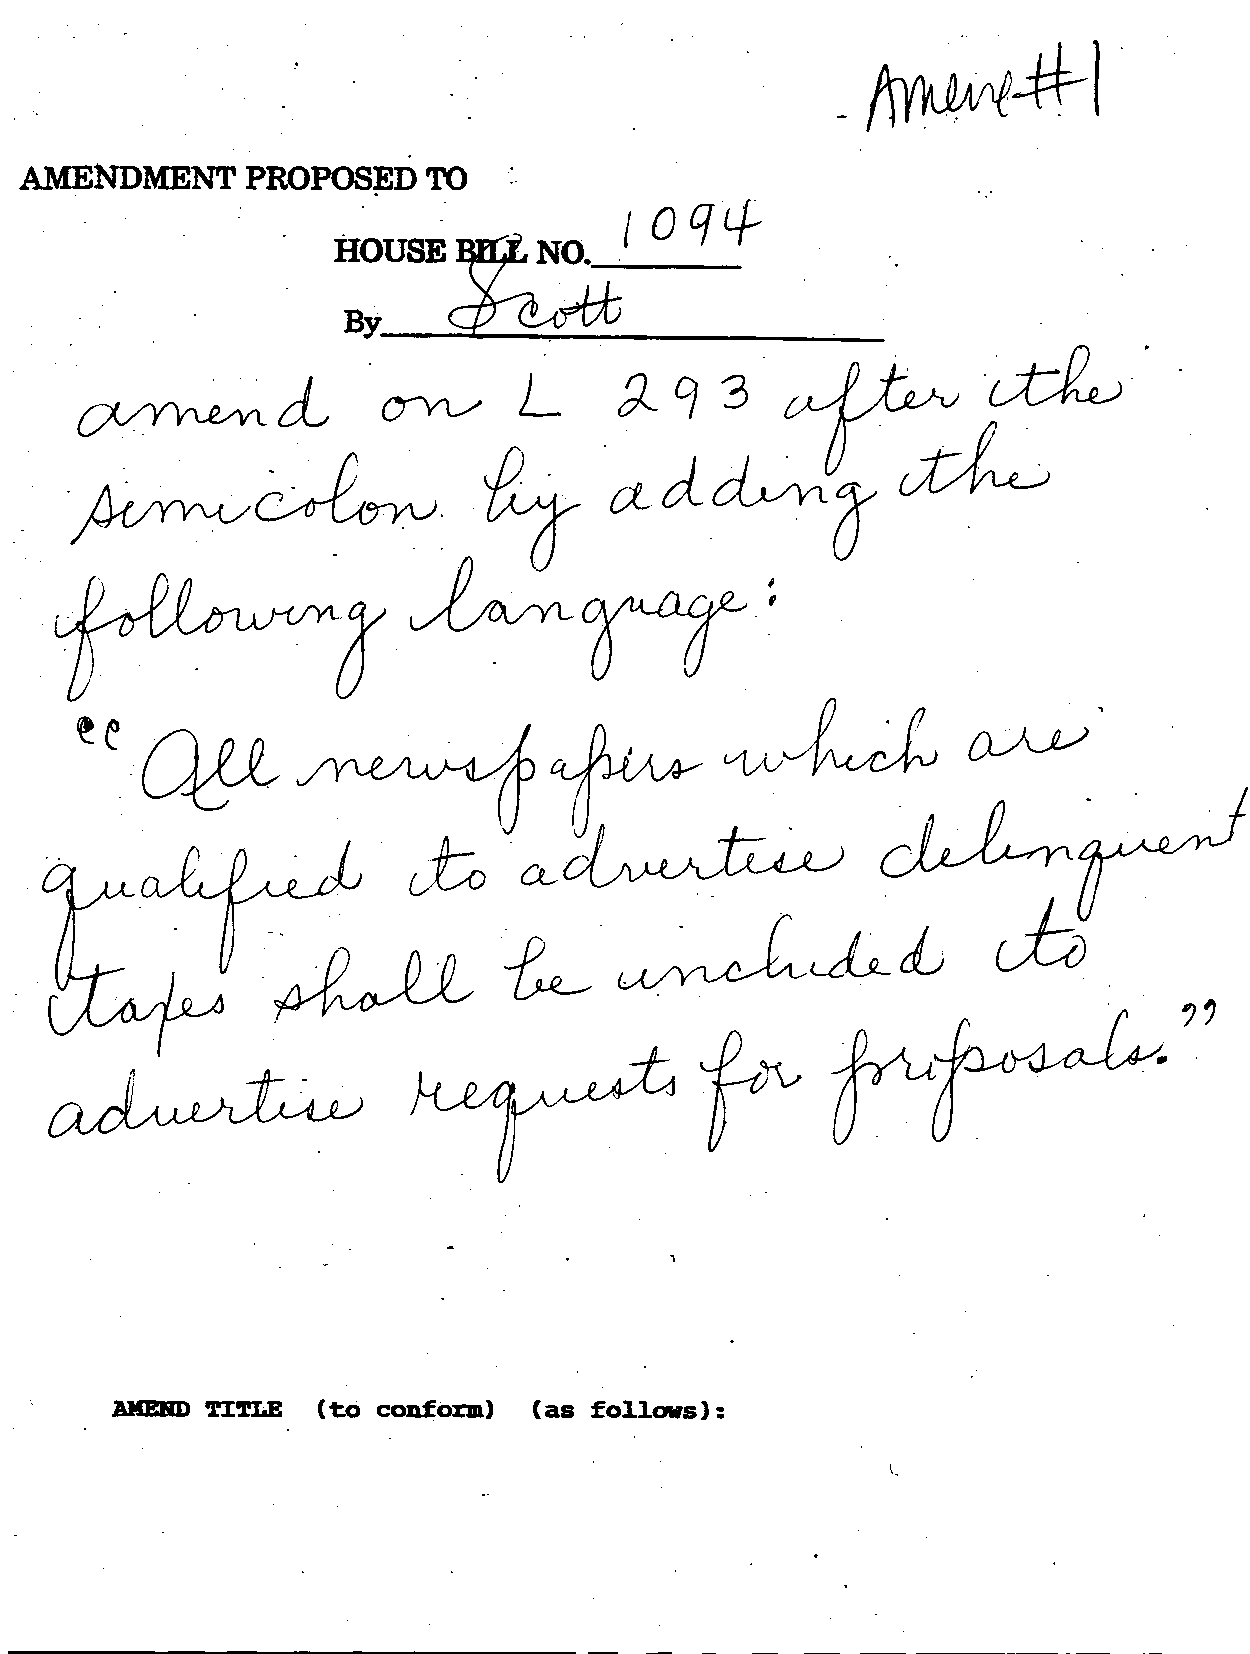 Amend #1
AMENDMENT PROPOSED TO
HOUSE BILL NO. 1094
By Scott
amend on L 293 after the
semicolon by adding the
following language:
"All newspapers which are
qualified to advertise delinquent
taxes shall be included to
advertise requests for proposals."
AMEND TITLE (to conform) (as follows):